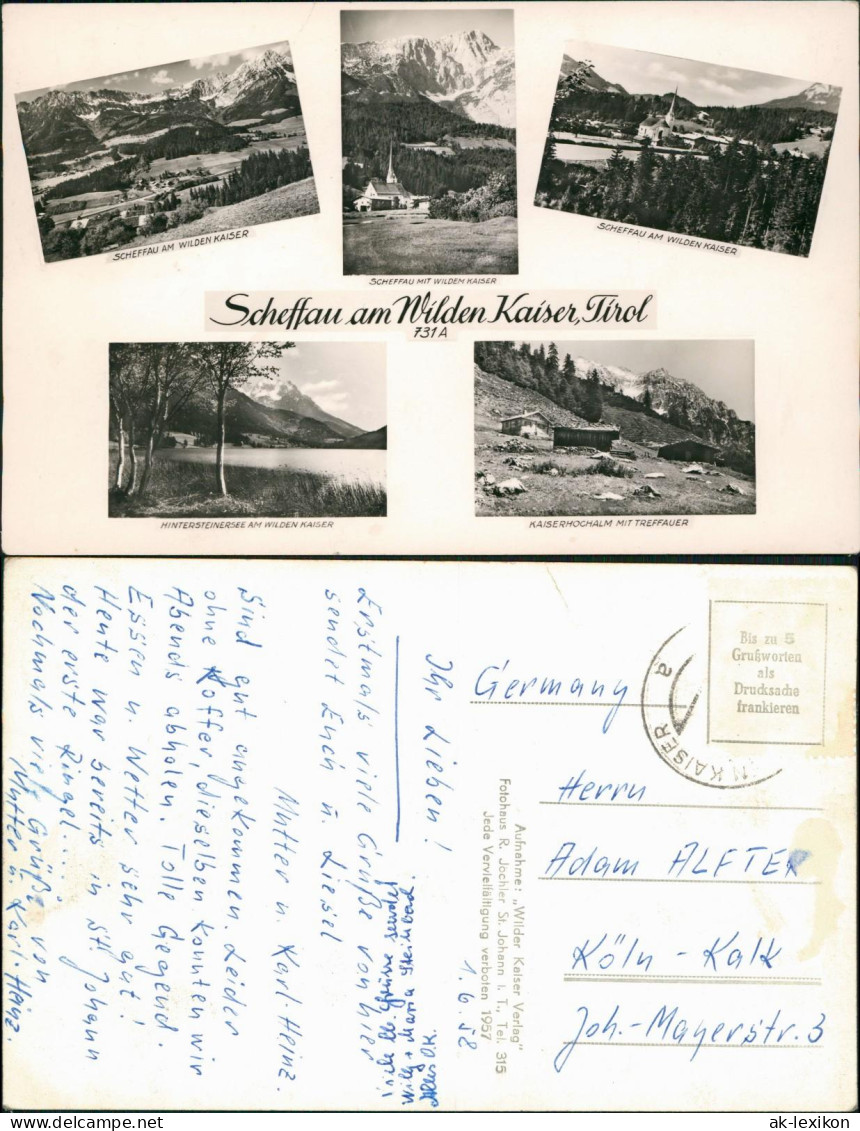 SCHEFFAU AM WILDEN KAISER
SCHEFFAU MIT WILDEM KAISER
SCHEFFAU AM WILDEN KAISER
Scheffau am Wilden Kaiser, Tirol
731 A
HINTERSTEINERSEE AM WILDEN KAISER
KAISERHOCHALM MIT TREFFAUER
1.6.58
Ihr Lieben!
Erstmals viele Grüße von hier
sendet Euch u. Liesel
Mutter u. Karl-Heinz.
Sind gut angekommen. Leider
ohne Koffer, dieselben konnten wir
Abends abholen. Tolle Gegend.
Essen u. Wetter sehr gut!
Heute war bereits in St. Johann
der erste Ringel...
Nochmals viele Grüße von
Mutter u. Karl-Heinz.
viele lb. Grüsse sendet
Willy + Maria Steinbad.
Alles OK.
Aufnahme: „Wilder Kaiser Verlag"
Fotohaus R. Jöchler St. Johann i. T., Tel. 315
Jede Vervielfältigung verboten 1957
Bis zu 5
Grußworten
als
Drucksache
frankieren
N KAISER
a
Germany
Herrn
Adam ALFTER
Köln-Kalk
Joh.-Mayerstr. 3
ak-lexikon